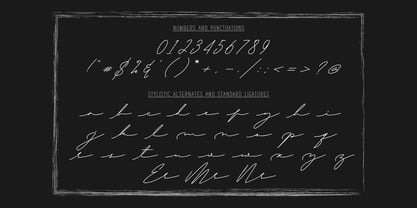 NUMBERS AND PUNCTUATIONS
0123456789
! " # $ % & ' ( ) * + , - . / : ; < = > ? @
STYLISTIC ALTERNATES AND STANDARD LIGATURES
a b c d e f g h i
j k l m n o p q
r s t u v w x y z
Ee Me Ne